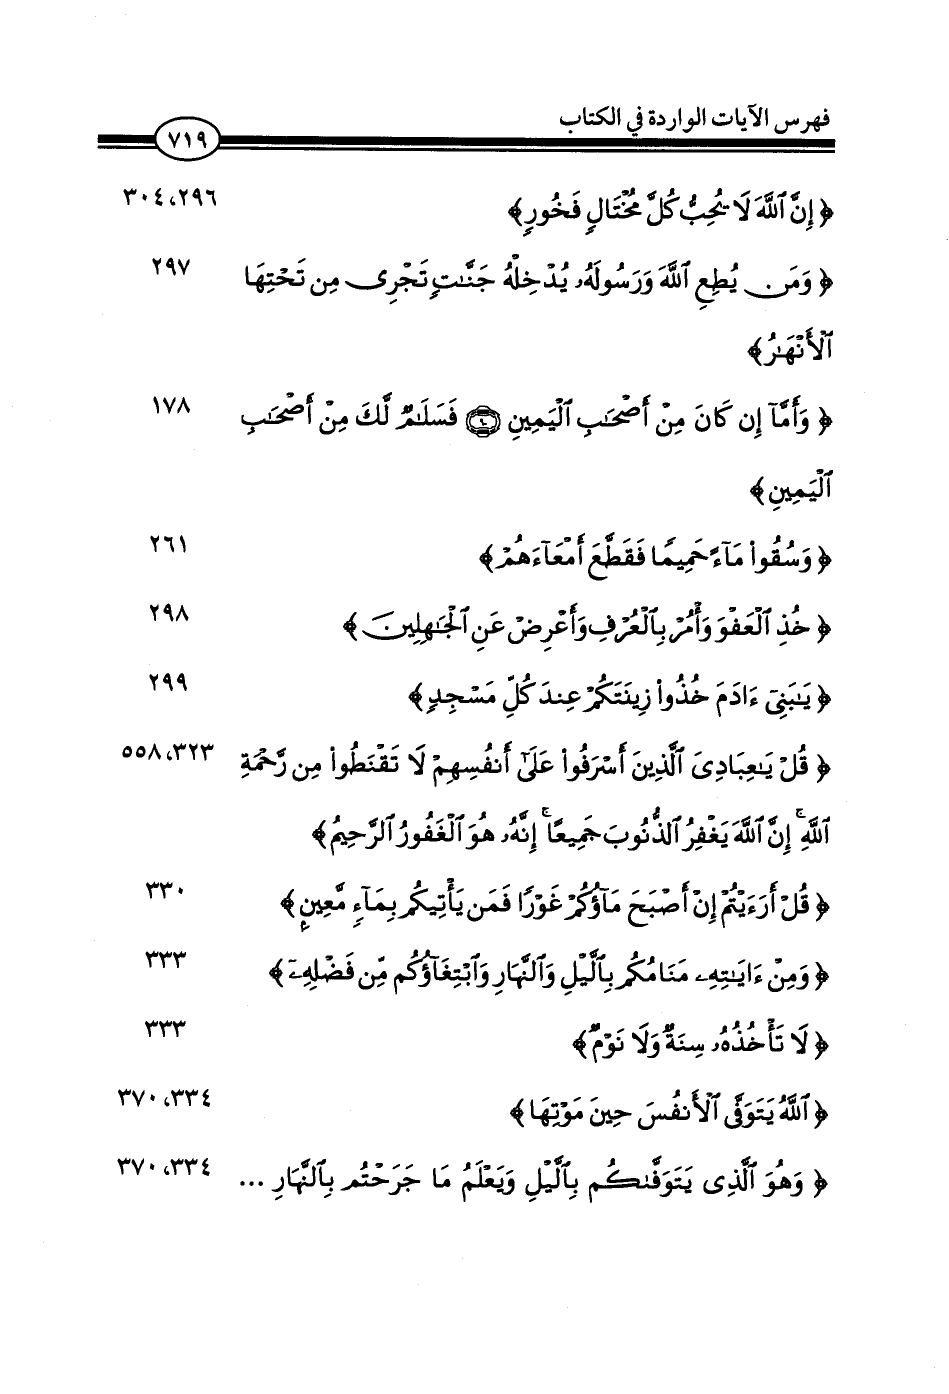 فهرس الآيات الواردة في الكتاب
٧١٩
﴿ إِنَّ ٱللَّهَ لَا يُحِبُّ كُلَّ مُخْتَالٍ فَخُورٍ ﴾ ٢٩٦، ٣٠٤
﴿ وَمَن يُطِعِ ٱللَّهَ وَرَسُولَهُۥ يُدْخِلْهُ جَنَّٰتٍ تَجْرِى مِن تَحْتِهَا ٢٩٧
ٱلْأَنْهَٰرُ ﴾
﴿ وَأَمَّآ إِن كَانَ مِنْ أَصْحَٰبِ ٱلْيَمِينِ فَسَلَٰمٌ لَّكَ مِنْ أَصْحَٰبِ ١٧٨
ٱلْيَمِينِ ﴾
﴿ وَسُقُوا۟ مَآءً حَمِيمًا فَقَطَّعَ أَمْعَآءَهُمْ ﴾ ٢٦١
﴿ خُذِ ٱلْعَفْوَ وَأْمُرْ بِٱلْعُرْفِ وَأَعْرِضْ عَنِ ٱلْجَٰهِلِينَ ﴾ ٢٩٨
﴿ يَٰبَنِىٓ ءَادَمَ خُذُوا۟ زِينَتَكُمْ عِندَ كُلِّ مَسْجِدٍ ﴾ ٢٩٩
﴿ قُلْ يَٰعِبَادِىَ ٱلَّذِينَ أَسْرَفُوا۟ عَلَىٰٓ أَنفُسِهِمْ لَا تَقْنَطُوا۟ مِن رَّحْمَةِ ٣٢٣، ٥٥٨
ٱللَّهِ ۚ إِنَّ ٱللَّهَ يَغْفِرُ ٱلذُّنُوبَ جَمِيعًا ۚ إِنَّهُۥ هُوَ ٱلْغَفُورُ ٱلرَّحِيمُ ﴾
﴿ قُلْ أَرَءَيْتُمْ إِنْ أَصْبَحَ مَآؤُكُمْ غَوْرًا فَمَن يَأْتِيكُم بِمَآءٍ مَّعِينٍۭ ﴾ ٣٣٠
﴿ وَمِنْ ءَايَٰتِهِۦ مَنَامُكُم بِٱلَّيْلِ وَٱلنَّهَارِ وَٱبْتِغَآؤُكُم مِّن فَضْلِهِۦٓ ﴾ ٣٣٣
﴿ لَا تَأْخُذُهُۥ سِنَةٌ وَلَا نَوْمٌ ﴾ ٣٣٣
﴿ ٱللَّهُ يَتَوَفَّى ٱلْأَنفُسَ حِينَ مَوْتِهَا ﴾ ٣٣٤، ٣٧٠
﴿ وَهُوَ ٱلَّذِى يَتَوَفَّىٰكُم بِٱلَّيْلِ وَيَعْلَمُ مَا جَرَحْتُم بِٱلنَّهَارِ ... ٣٣٤، ٣٧٠